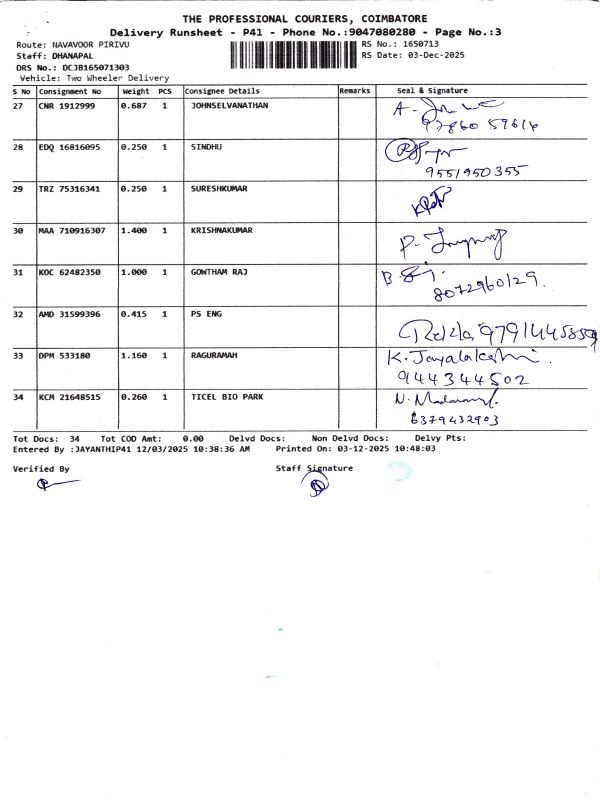 THE PROFESSIONAL COURIERS, COIMBATORE
Delivery Runsheet - P41 - Phone No.:9047080280 - Page No.:3
Route: NAVAVOOR PIRIVU RS No.: 1650713
Staff: DHANAPAL RS Date: 03-Dec-2025
DRS No.: DCJB165071303
Vehicle: Two Wheeler Delivery
S No Consignment No Weight PCS Consignee Details Remarks Seal & Signature
27 CNR 1912999 0.687 1 JOHNSELVANATHAN A.
97860 59614
28 EDQ 16816095 0.250 1 SINDHU
9551950355
29 TRZ 75316341 0.250 1 SURESHKUMAR
30 MAA 710916307 1.400 1 KRISHNAKUMAR P.
31 KOC 62482350 1.000 1 GOWTHAM RAJ B
8072960129.
32 AMD 31599396 0.415 1 PS ENG
33 DPM 533180 1.160 1 RAGURAMAH K. Jayalakshmi.
944344502
34 KCM 21648515 0.260 1 TICEL BIO PARK N.
6379432903
Tot Docs: 34 Tot COD Amt: 0.00 Delvd Docs: Non Delvd Docs: Delvy Pts:
Entered By :JAYANTHIP41 12/03/2025 10:38:36 AM Printed On: 03-12-2025 10:48:03
Verified By Staff Signature